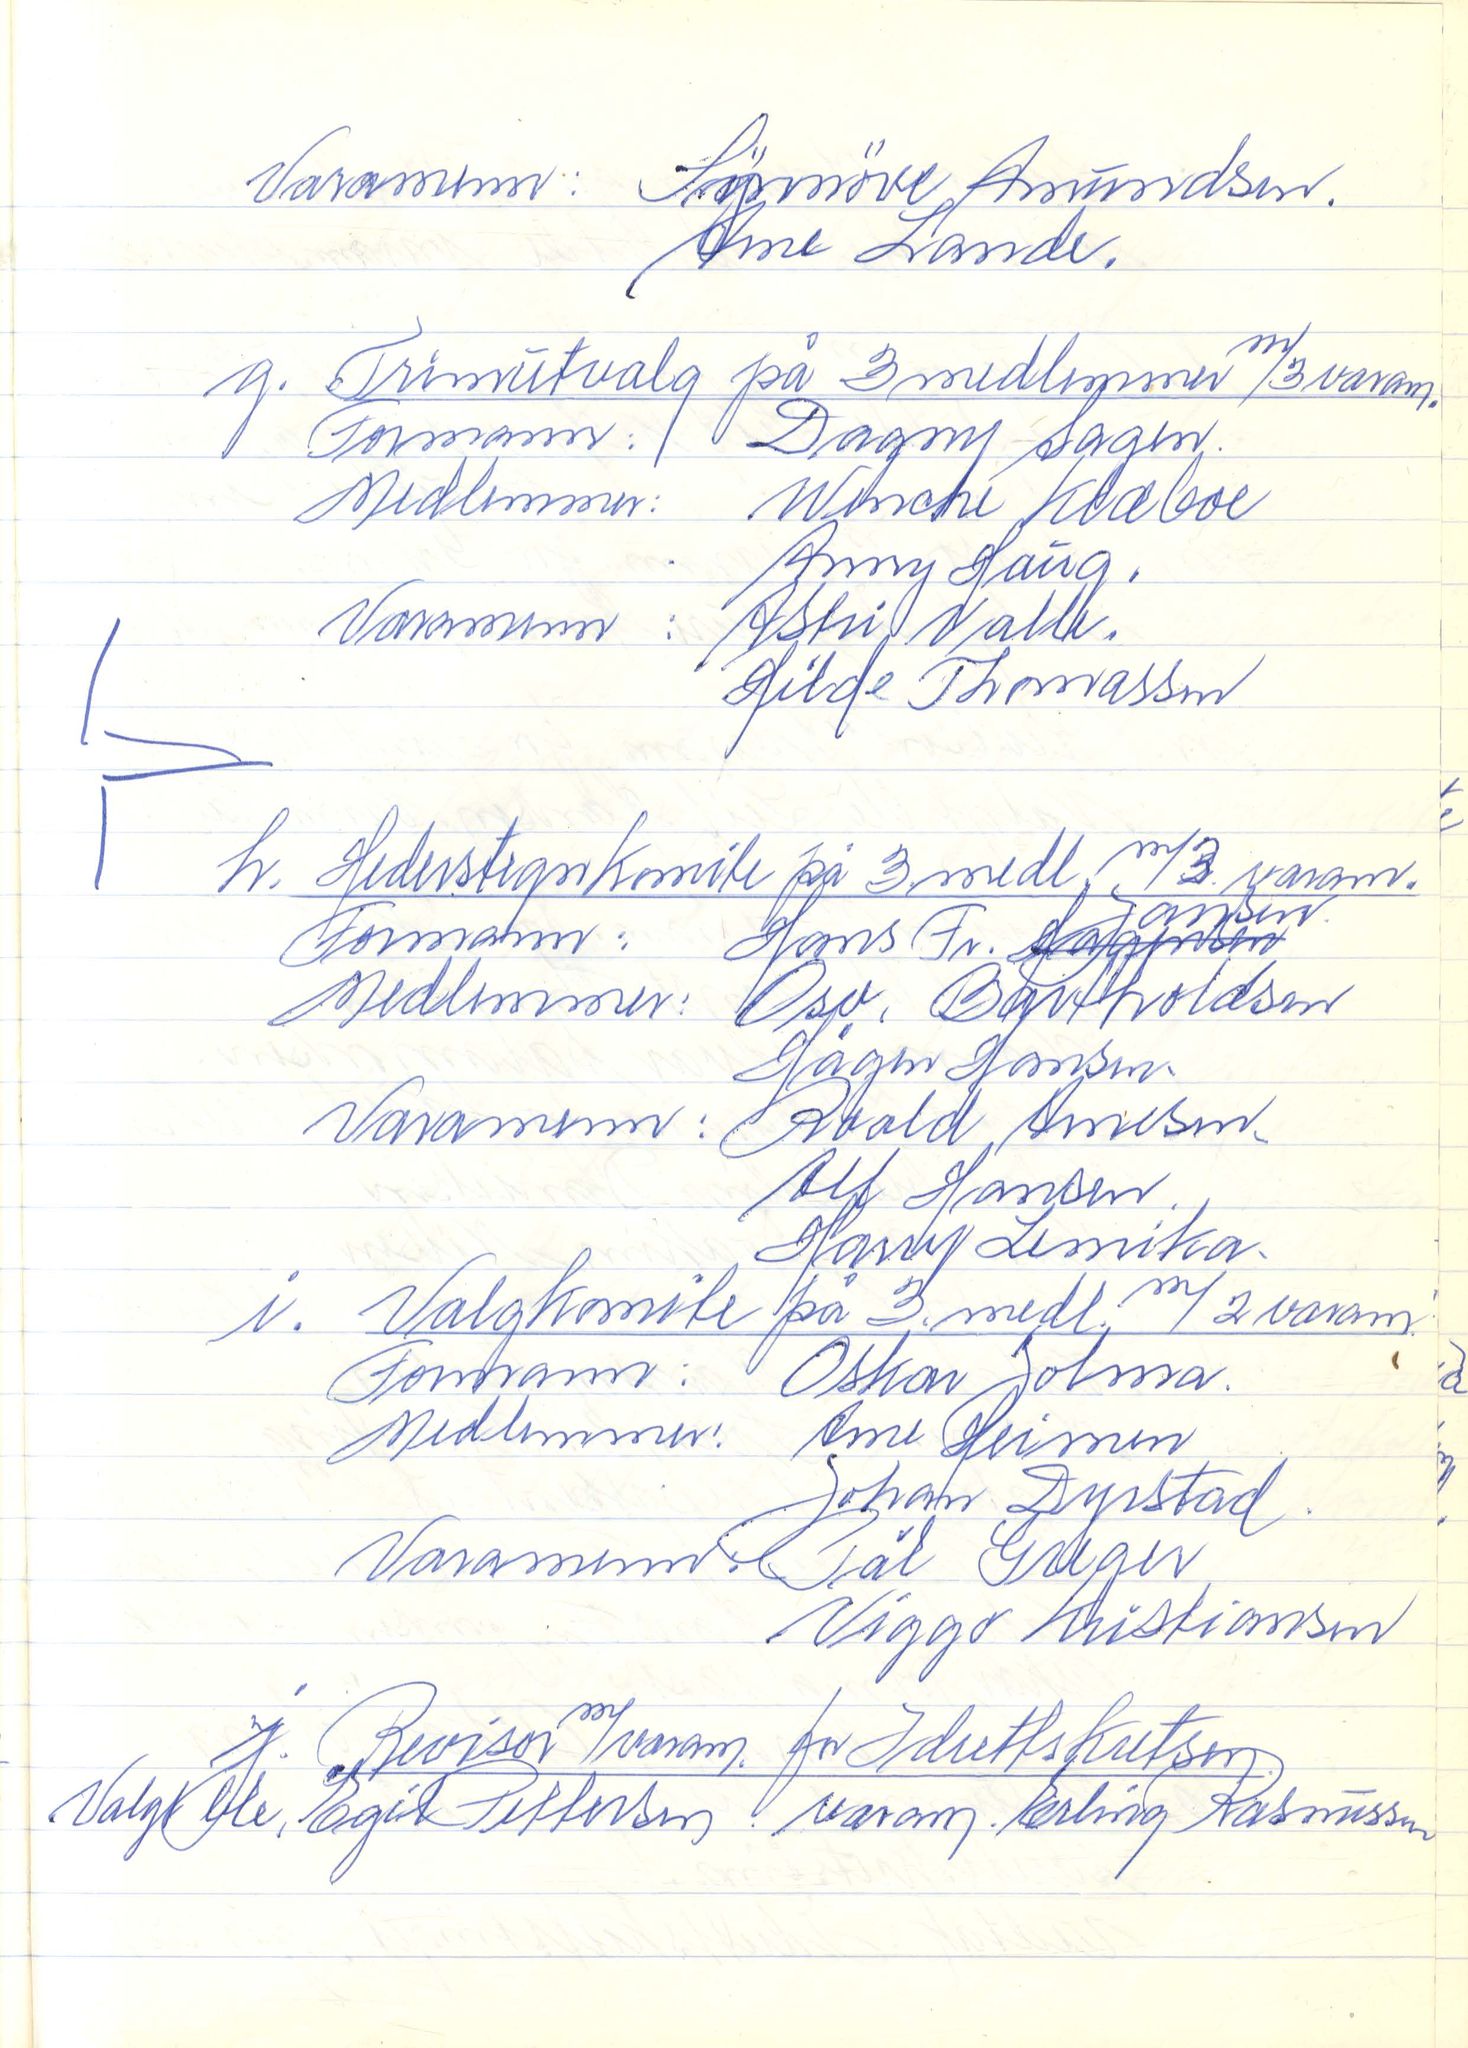 Varamenn: Synnöve Amundsen.
Arne Lande.
g. Trimutvalg på 3 medlemmer m/3 varam.
Formann: Dagny Sagen.
Medlemmer: Wenche Klæboe
Anny Haug.
Varamenn: Astri Valle.
Hilde Thomassen
h. Hederstegnkomite på 3 medl. m/3 varam.
Formann: Hans Fr. Jansen.
Medlemmer: Osv. Bartholdsen
Hågen Hansen.
Varamenn: Roald Arnesen.
Alf Hansen.
Harry Lemika.
i. Valgkomite på 3. medl. m/2 varam.
Formann: Oskar Jolma.
Medlemmer: Arne Heimen
Johan Dyrstad.
Varamenn: Pål Greger
Viggo Kristiansen
j. Revisor m/varam. for Idrettskretsen.
Valgt ble, Egil Pettersen. varam. Erling Rasmussen